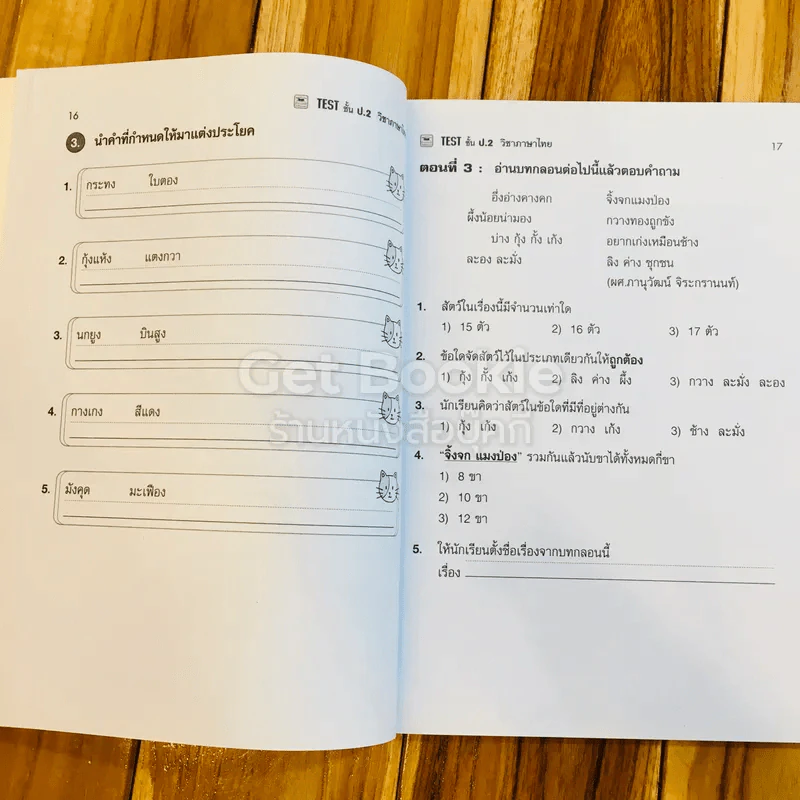 16
TEST ชั้น ป.2 วิชาภาษาไทย
3. นำคำที่กำหนดให้มาแต่งประโยค
1. กระทง ใบตอง
2. กุ้งแห้ง แตงกวา
3. นกยูง บินสูง
4. กางเกง สีแดง
5. มังคุด มะเฟือง
TEST ชั้น ป.2 วิชาภาษาไทย 17
ตอนที่ 3 : อ่านบทกลอนต่อไปนี้แล้วตอบคำถาม
อึ่งอ่างคางคก จิ้งจกแมงป่อง
ผึ้งน้อยน่ามอง กวางทองถูกขัง
บ่าง กุ้ง กั้ง เก้ง อยากเก่งเหมือนช้าง
ละอง ละมั่ง ลิง ค่าง ซุกซน
(ผศ.ภานุวัฒน์ จิระกรานนท์)
1. สัตว์ในเรื่องนี้มีจำนวนเท่าใด
1) 15 ตัว 2) 16 ตัว 3) 17 ตัว
2. ข้อใดจัดสัตว์ไว้ในประเภทเดียวกันให้ถูกต้อง
1) กุ้ง กั้ง เก้ง 2) ลิง ค่าง ผึ้ง 3) กวาง ละมั่ง ละอง
3. นักเรียนคิดว่าสัตว์ในข้อใดที่มีที่อยู่ต่างกัน
1) กุ้ง เก้ง 2) กวาง เก้ง 3) ช้าง ละมั่ง
4. "จิ้งจก แมงป่อง" รวมกันแล้วนับขาได้ทั้งหมดกี่ขา
1) 8 ขา
2) 10 ขา
3) 12 ขา
5. ให้นักเรียนตั้งชื่อเรื่องจากบทกลอนนี้
เรื่อง
Get Bookie
ร้านหนังสือบุ๊คกี้